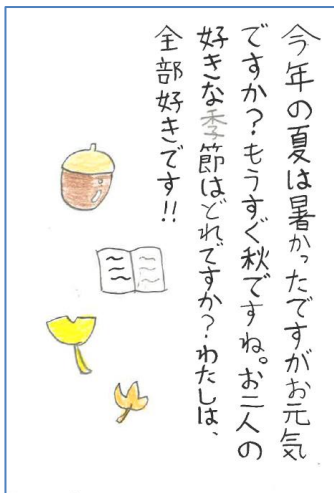 今年の夏は暑かったですがお元気
ですか?もうすぐ秋ですね。お二人の
好きな季節はどれですか?わたしは、
全部好きです!!